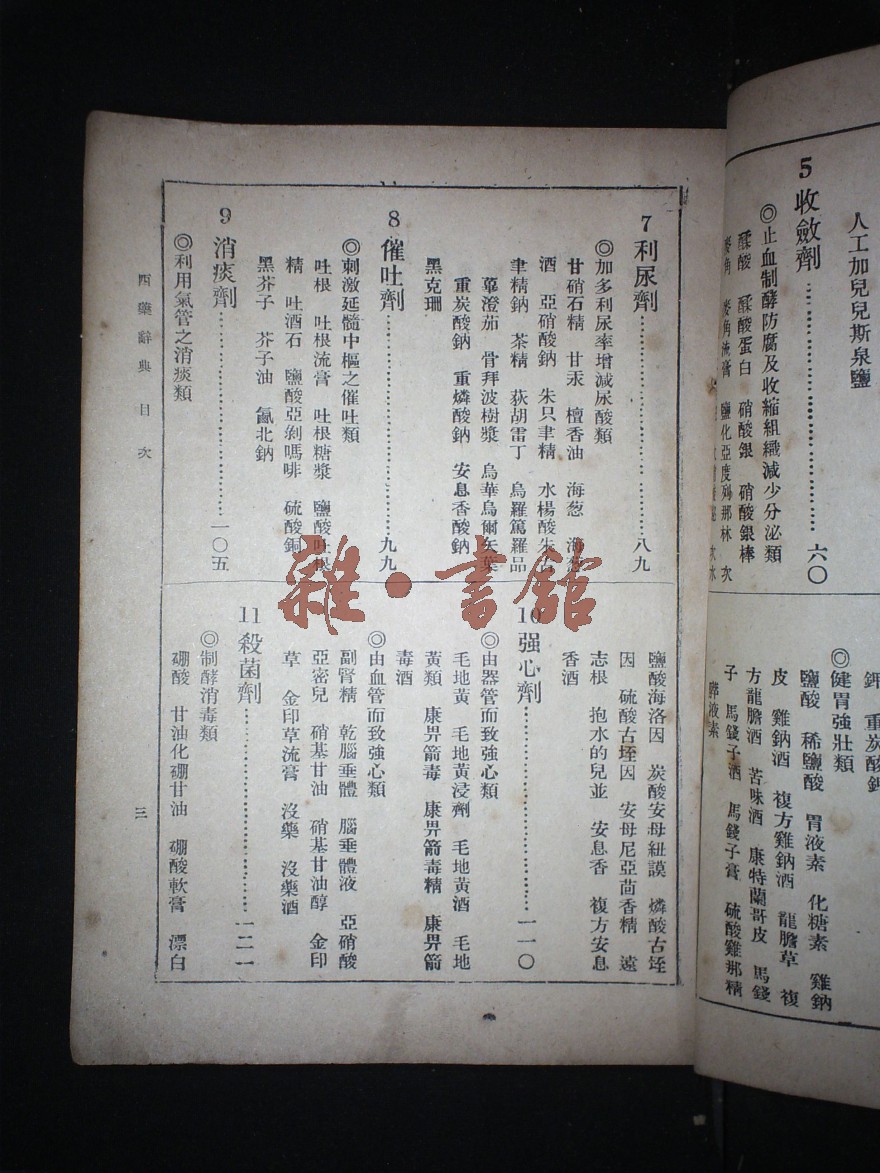 人工加兒兒斯泉鹽
5 收斂劑 六〇
◎止血制酵防腐及收縮組織減少分泌類
鞣酸 鞣酸蛋白 硝酸銀 硝酸銀棒
麥角 麥角流膏 鹽化亞度列那林 次
◎健胃強壯類
鹽酸 稀鹽酸 胃液素 化糖素 雞鈉
皮 雞鈉酒 複方雞鈉酒 龍膽草 複
方龍膽酒 苦味酒 康特蘭哥皮 馬錢
子 馬錢子酒 馬錢子膏 硫酸雞那精
膵液素
7 利尿劑 八九
◎加多利尿率增減尿酸類
甘硝石精 甘汞 檀香油 海葱 海葱
酒 亞硝酸鈉 朱只聿精 水楊酸朱只
聿精鈉 茶精 荻胡雷丁 烏羅篤羅品
蓽澄茄 骨拜波樹漿 烏華烏爾矢葉
重炭酸鈉 重燐酸鈉 安息香酸鈉
黑克珊
8 催吐劑 九九
◎刺激延髓中樞之催吐類
吐根 吐根流膏 吐根糖漿 鹽酸吐根
精 吐酒石 鹽酸亞剝嗎啡 硫酸銅
黑芥子 芥子油 氤北鈉
9 消痰劑 一〇五
◎利用氣管之消痰類
鹽酸海洛因 炭酸安母紐謨 燐酸古垤
因 硫酸古垤因 安母尼亞茴香精 遠
志根 抱水的兒並 安息香 複方安息
香酒
10 强心劑 一一〇
◎由器管而致強心類
毛地黃 毛地黃浸劑 毛地黃酒 毛地
黃類 康畀箭毒 康畀箭毒精 康畀箭
毒酒
◎由血管而致強心類
副腎精 乾腦垂體 腦垂體液 亞硝酸
亞密兒 硝基甘油 硝基甘油醇 金印
草 金印草流膏 沒藥 沒藥酒
11 殺菌劑 一二一
◎制酵消毒類
硼酸 甘油化硼甘油 硼酸軟膏 漂白
西藥辭典 目次
三
雜·書館